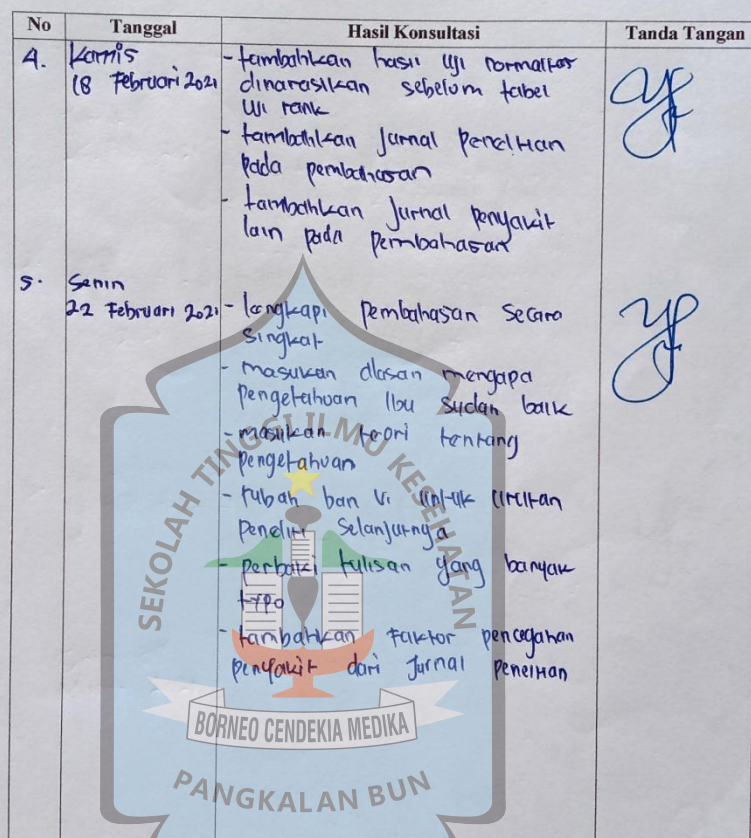 No Tanggal Hasil Konsultasi Tanda Tangan
4. Kamis - tambahkan hasil uji normalitas
18 Februari 2021 dinarasikan sebelum tabel
uji rank
- tambahkan Jurnal Penelitian
pada pembahasan
- tambahkan Jurnal penyakit
lain pada Pembahasan
5. Senin
22 Februari 2021 - lengkapi pembahasan secara
singkat
- masukan alasan mengapa
pengetahuan Ibu sudah baik
- masukan teori tentang
pengetahuan
- rubah bab VI untuk
peneliti selanjutnya
- perbaiki tulisan yang banyak
typo
- tambahkan Faktor pencegahan
penyakit dari Jurnal penelitian
SEKOLAH TINGGI ILMU KESEHATAN
BORNEO CENDEKIA MEDIKA
PANGKALAN BUN